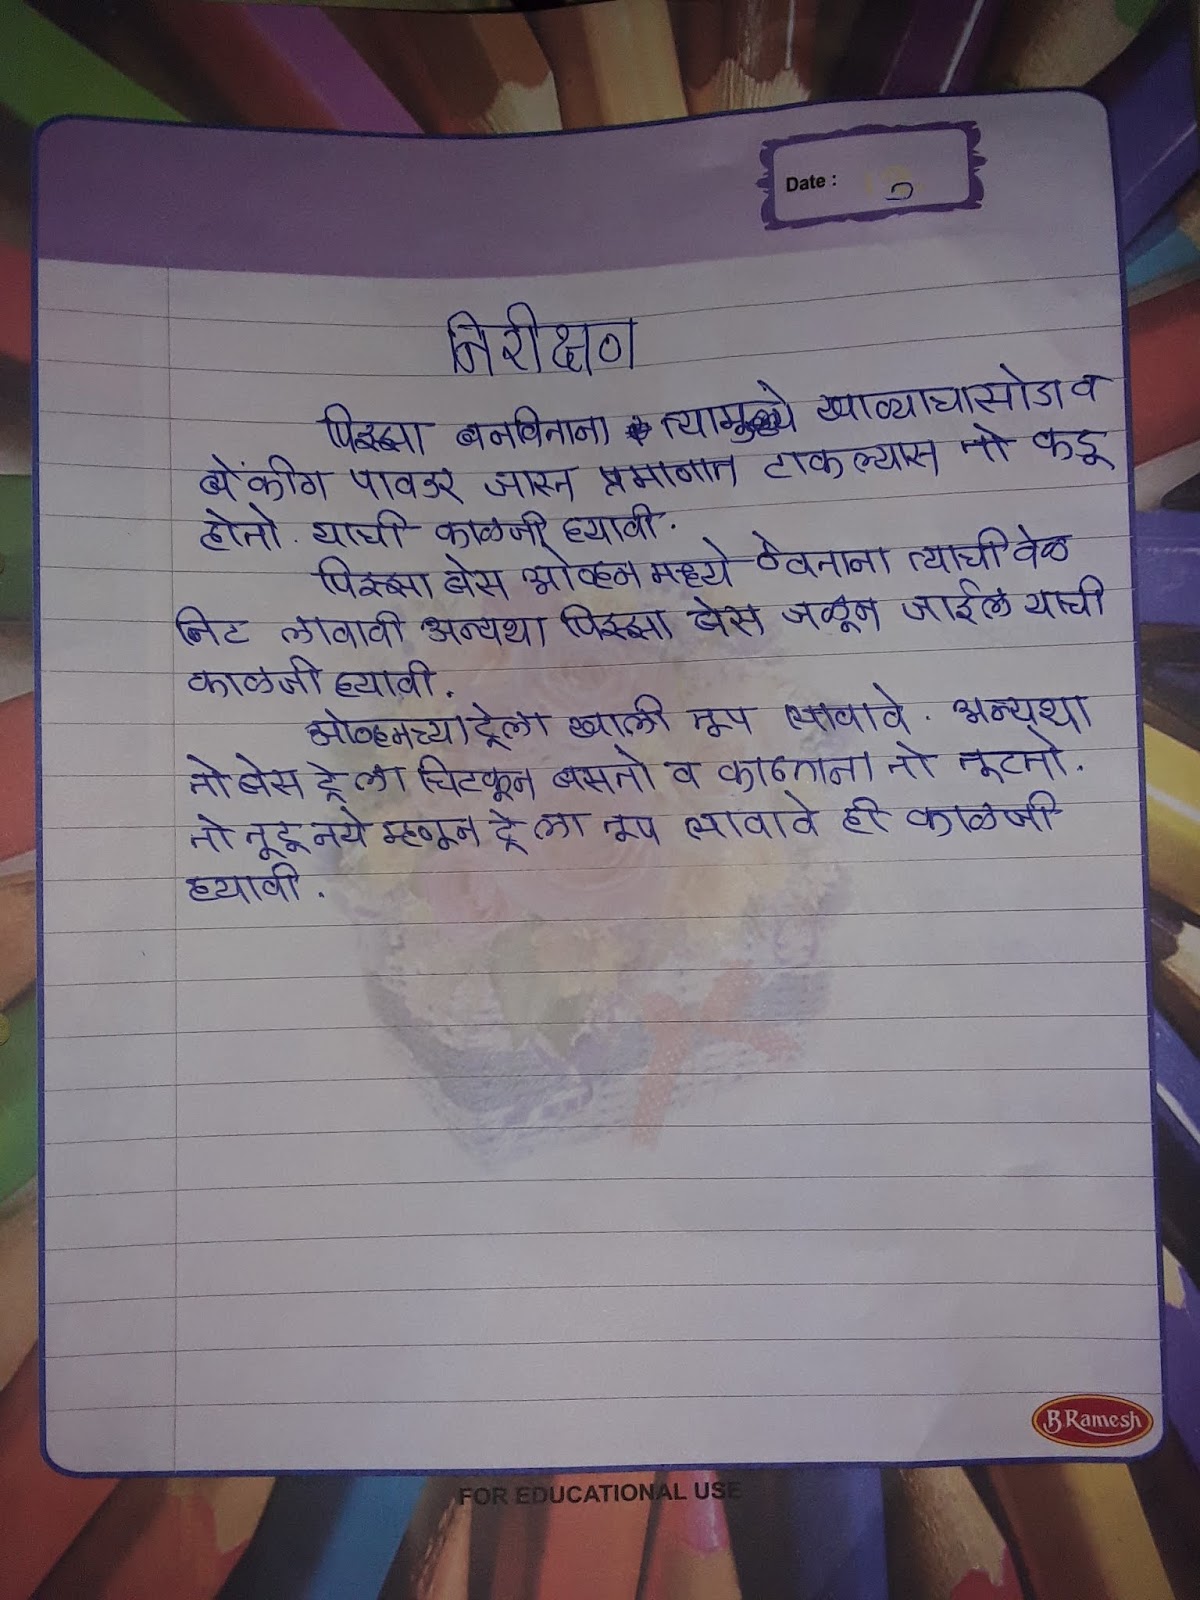 Date :
निरीक्षण
पिझ्झा बनविताना त्यामुळ्ये खाव्याचासोडा व
बेंकींग पावडर जास्त प्रमानात टाकल्यास तो कडू
होतो. याची काळजी घ्यावी.
पिझ्झा बेस ओव्हन मध्ये ठेवताना त्याची वेळ
निट लावावी अन्यथा पिझ्झा बेस जळून जाईल याची
काळजी घ्यावी.
ओव्हनच्या ट्रेला खाली तूप लावावे. अन्यथा
तो बेस ट्रे ला चिटकून बसतो व काढताना तो तूटतो.
तो तूटू नये म्हणून ट्रे ला तूप लावावे ही काळजी
घ्यावी.
B Ramesh
FOR EDUCATIONAL USE